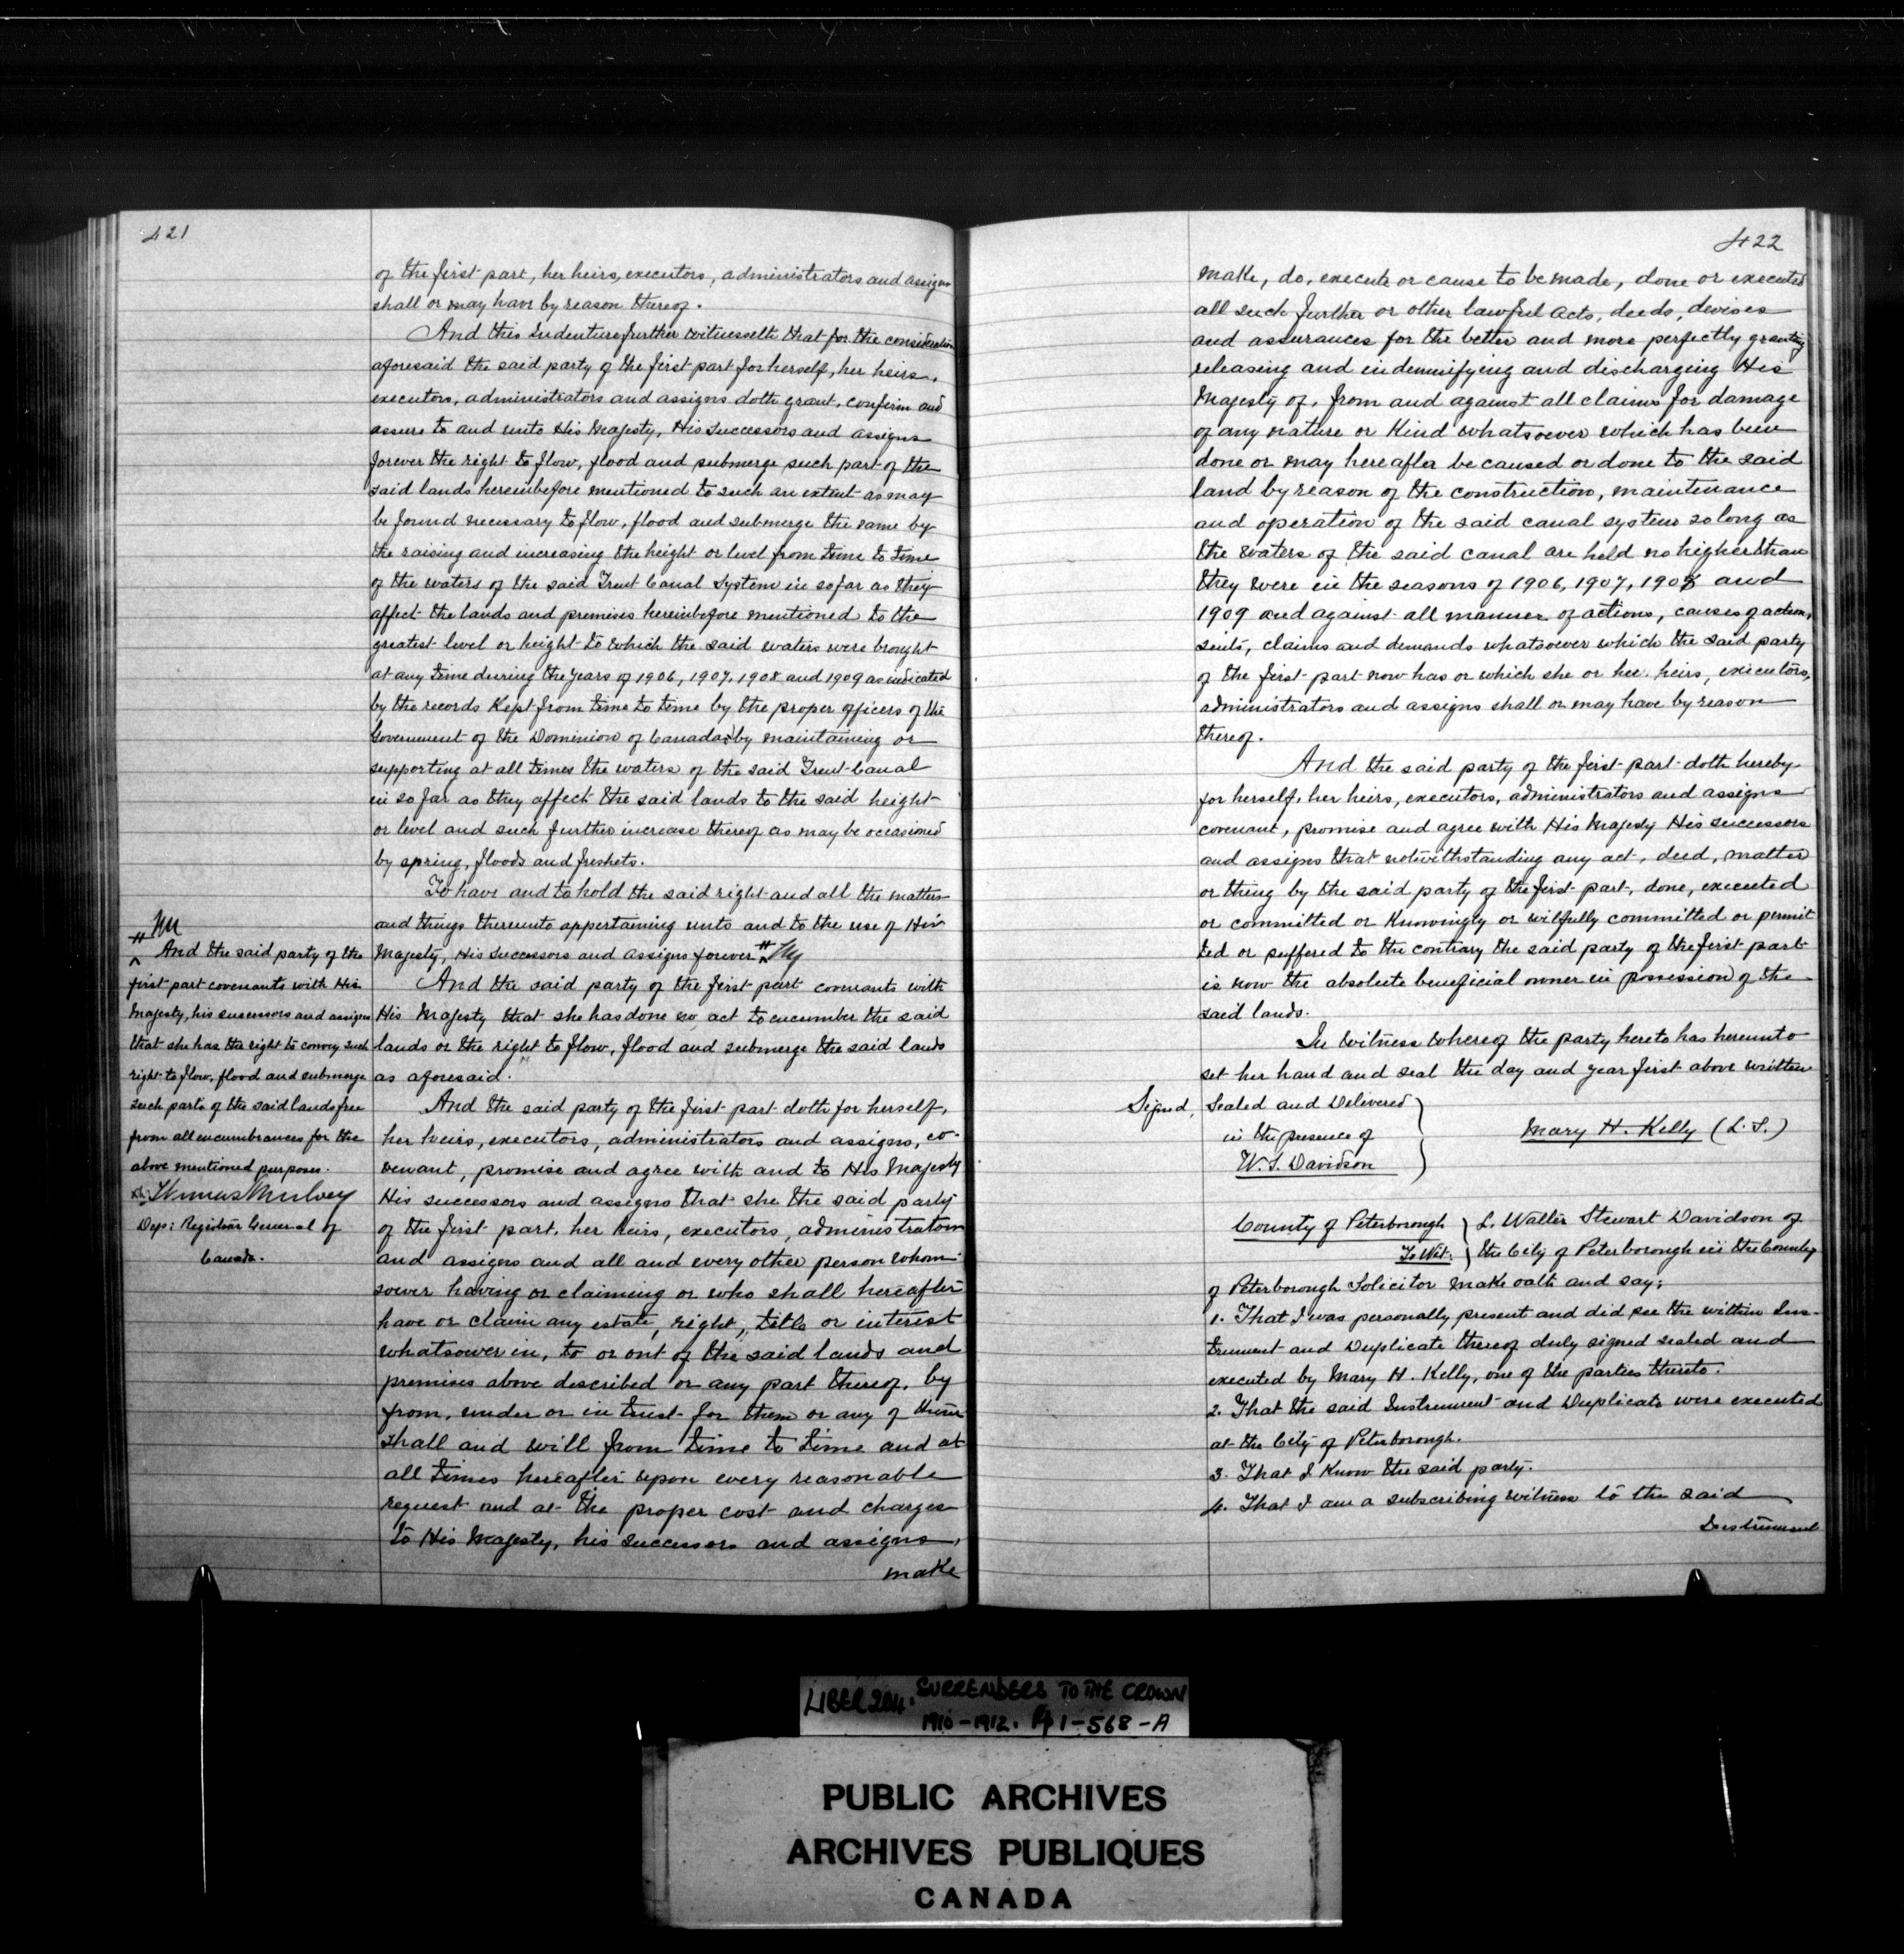 421
of the first part, her heirs, executors, administrators and assigns
shall or may have by reason thereof.
And this Indenture further witnesseth that for the consideration
aforesaid the said party of the first part for herself, her heirs,
executors, administrators and assigns doth grant, confirm and
assure to and unto His Majesty, His Successors and assigns
forever the right to flow, flood and submerge such part of the
said lands hereinbefore mentioned to such an extent as may
be found necessary to flow, flood and submerge the same by
the raising and increasing the height or level from time to time
of the waters of the said Trent Canal System in so far as they
affect the lands and premises hereinbefore mentioned to the
greatest level or height to which the said waters were brought
at any time during the years of 1906, 1907, 1908 and 1909 as indicated
by the records Kept from time to time by the proper officers of the
Government of the Dominion of Canada by maintaining or
supporting at all times the waters of the said Trent Canal
in so far as they affect the said lands to the said height
or level and such further increase thereof as may be occasioned
by spring, floods and freshets.
To have and to hold the said right and all the matters
and things thereunto appertaining unto and to the use of His
Majesty, His Successors and assigns forever #
And the said party of the first part covenants with
His Majesty that she has done no act to encumber the said
lands or the right to flow, flood and submerge the said lands
as aforesaid.
And the said party of the first part doth for herself,
her heirs, executors, administrators and assigns, co-
venant, promise and agree with and to His Majesty
His successors and assigns that she the said party
of the first part, her heirs, executors, administrators
and assigns and all and every other person whom-
soever having or claiming or who shall hereafter
have or claim any estate, right, title or interest
whatsoever in, to or out of the said lands and
premises above described or any part thereof, by
from, under or in trust for them or any of them
shall and will from time to time and at
all times hereafter upon every reasonable
request and at the proper cost and charges
to His Majesty, his successors and assigns,
make
#
And the said party of the
first part covenants with His
Majesty, his successors and assigns
that she has the right to convey such
right to flow, flood and submerge
such parts of the said lands free
from all encumbrances for the
above mentioned purposes.
Thomas Mulvey
Dep: Registrar General of
Canada.
422
make, do, execute or cause to be made, done or executed
all such further or other lawful acts, deeds, devises
and assurances for the better and more perfectly granting
releasing and indemnifying and discharging His
Majesty of, from and against all claims for damage
of any nature or Kind whatsoever which has been
done or may hereafter be caused or done to the said
land by reason of the construction, maintenance
and operation of the said canal system so long as
the waters of the said canal are held no higher than
they were in the seasons of 1906, 1907, 1908 and
1909 and against all manner of actions, causes of action,
suits, claims and demands whatsoever which the said party
of the first part now has or which she or her heirs, executors,
administrators and assigns shall or may have by reason
thereof.
And the said party of the first part doth hereby
for herself, her heirs, executors, administrators and assigns
covenant, promise and agree with His Majesty His successors
and assigns that notwithstanding any act, deed, matter
or thing by the said party of the first part, done, executed
or committed or Knowingly or wilfully committed or permit
ted or suffered to the contrary the said party of the first part
is now the absolute beneficial owner in possession of the
said lands.
In Witness Whereof the party hereto has hereunto
set her hand and seal the day and year first above written
Signed, Sealed and Delivered
in the presence of
W. S. Davidson
Mary H. Kelly (L.S.)
County of Peterborough
To Wit:
I, Walter Stewart Davidson of
the City of Peterborough in the County
of Peterborough Solicitor make oath and say;
1. That I was personally present and did see the within Ins-
trument and Duplicate thereof duly signed sealed and
executed by Mary H. Kelly, one of the parties thereto.
2. That the said Instrument and Duplicate were executed
at the City of Peterborough.
3. That I know the said party.
4. That I am a subscribing witness to the said
Instrument
LIBER 204. SURRENDERS TO THE CROWN
1910-1912. Pp 1-568-A
PUBLIC ARCHIVES
ARCHIVES PUBLIQUES
CANADA